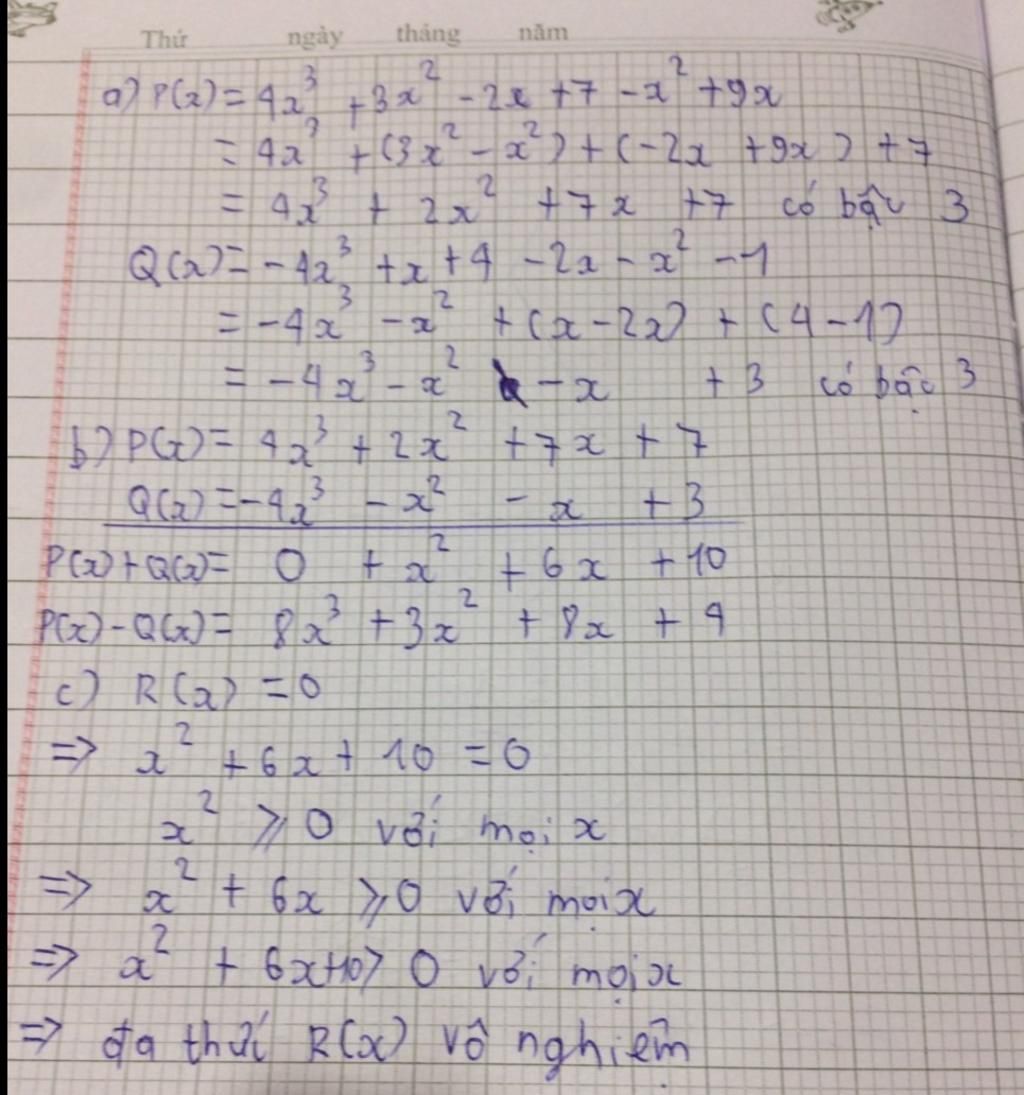 Thứ ngày tháng năm
a) P(x) = 4x³ + 3x² - 2x + 7 - x² + 9x
= 4x³ + (3x² - x²) + (-2x + 9x) + 7
= 4x³ + 2x² + 7x + 7 có bậc 3
Q(x) = -4x³ + x + 4 - 2x - x² - 1
= -4x³ - x² + (x - 2x) + (4 - 1)
= -4x³ - x² - x + 3 có bậc 3
b) P(x) = 4x³ + 2x² + 7x + 7
Q(x) = -4x³ - x² - x + 3
P(x) + Q(x) = 0 + x² + 6x + 10
P(x) - Q(x) = 8x³ + 3x² + 8x + 4
c) R(x) = 0
=> x² + 6x + 10 = 0
x² ⩾ 0 với mọi x
=> x² + 6x ⩾ 0 với mọi x
=> x² + 6x+10 > 0 với mọi x
=> đa thức R(x) vô nghiệm